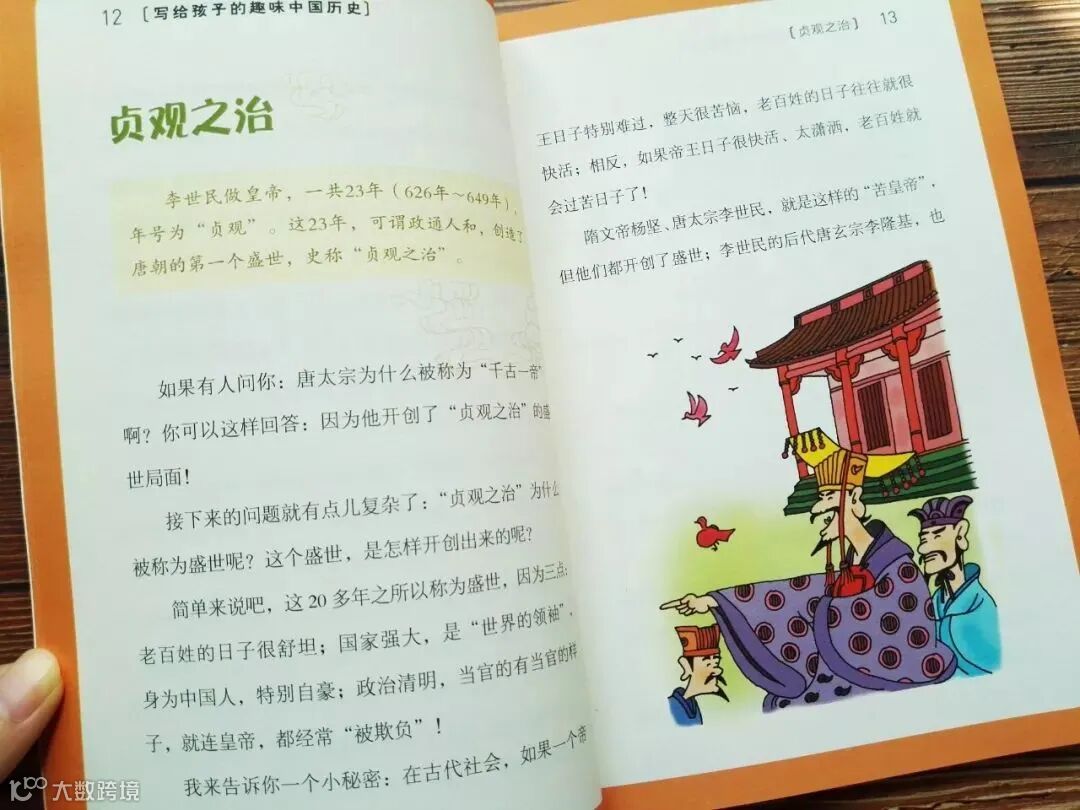 12 [写给孩子的趣味中国历史]
贞观之治
李世民做皇帝，一共23年（626年～649年），
年号为“贞观”。这23年，可谓政通人和，创造了
唐朝的第一个盛世，史称“贞观之治”。
如果有人问你：唐太宗为什么被称为“千古一帝”
啊？你可以这样回答：因为他开创了“贞观之治”的盛
世局面！
接下来的问题就有点儿复杂了：“贞观之治”为什么
被称为盛世呢？这个盛世，是怎样开创出来的呢？
简单来说吧，这20多年之所以称为盛世，因为三点：
老百姓的日子很舒坦；国家强大，是“世界的领袖”，
身为中国人，特别自豪；政治清明，当官的有当官的样
子，就连皇帝，都经常“被欺负”！
我来告诉你一个小秘密：在古代社会，如果一个帝
[贞观之治] 13
王日子特别难过，整天很苦恼，老百姓的日子往往就很
快活；相反，如果帝王日子很快活、太潇洒，老百姓就
会过苦日子了！
隋文帝杨坚、唐太宗李世民，就是这样的“苦皇帝”，
但他们都开创了盛世；李世民的后代唐玄宗李隆基，也
大数跨境